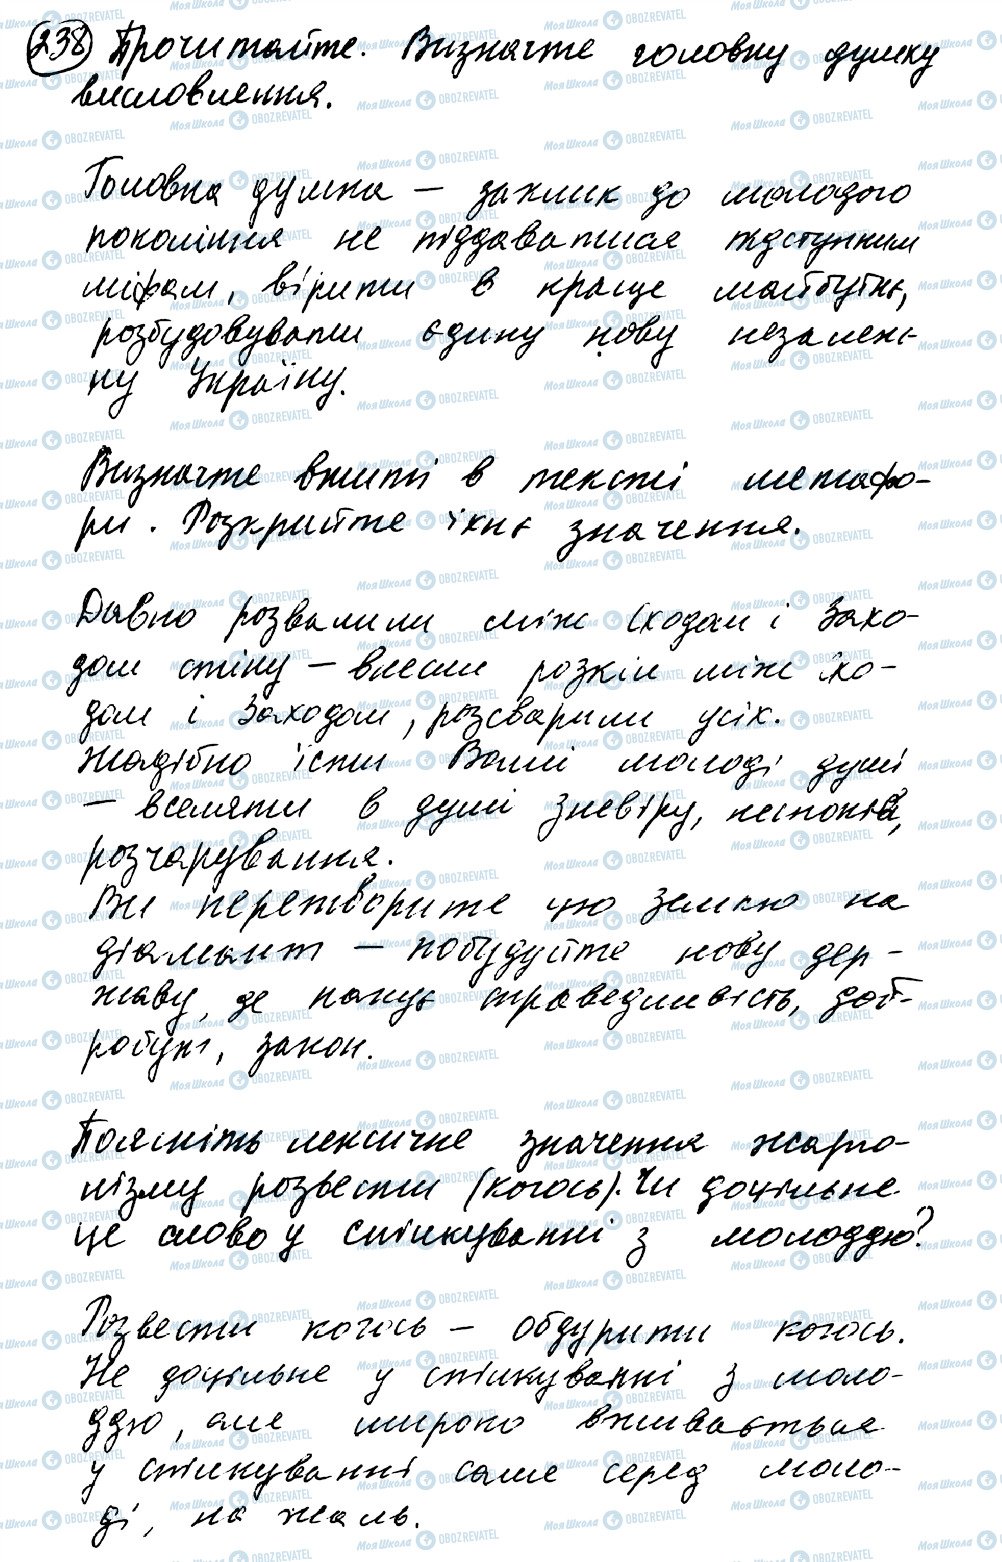 238 Прочитайте. Визначте головну думку
висловлення.
Головна думка – заклик до молодого
покоління не піддаватися підступним
міфам, вірити в краще майбутнє,
розбудовувати єдину нову незалеж-
ну Україну.
Визначте вжиті в тексті метафо-
ри. Розкрийте їхнє значення.
Давно розвалили між Сходом і Захо-
дом стіну – внесли розкіл між Схо-
дом і Заходом, розсварили усіх.
Жадібно їсти Ваші молоді душі
– вселяти в душі зневіру, неспокій,
розчарування.
Ви перетворите цю землю на
діамант – побудуйте нову дер-
жаву, де панує справедливість, доб-
робут, закон.
Поясніть лексичне значення жарго-
нізму розвести (когось). Чи доцільне
це слово у спілкуванні з молоддю?
Розвести когось – обдурити когось.
Не доцільне у спілкуванні з моло-
ддю, але широко вживається
у спілкуванні саме серед моло-
ді, на жаль.